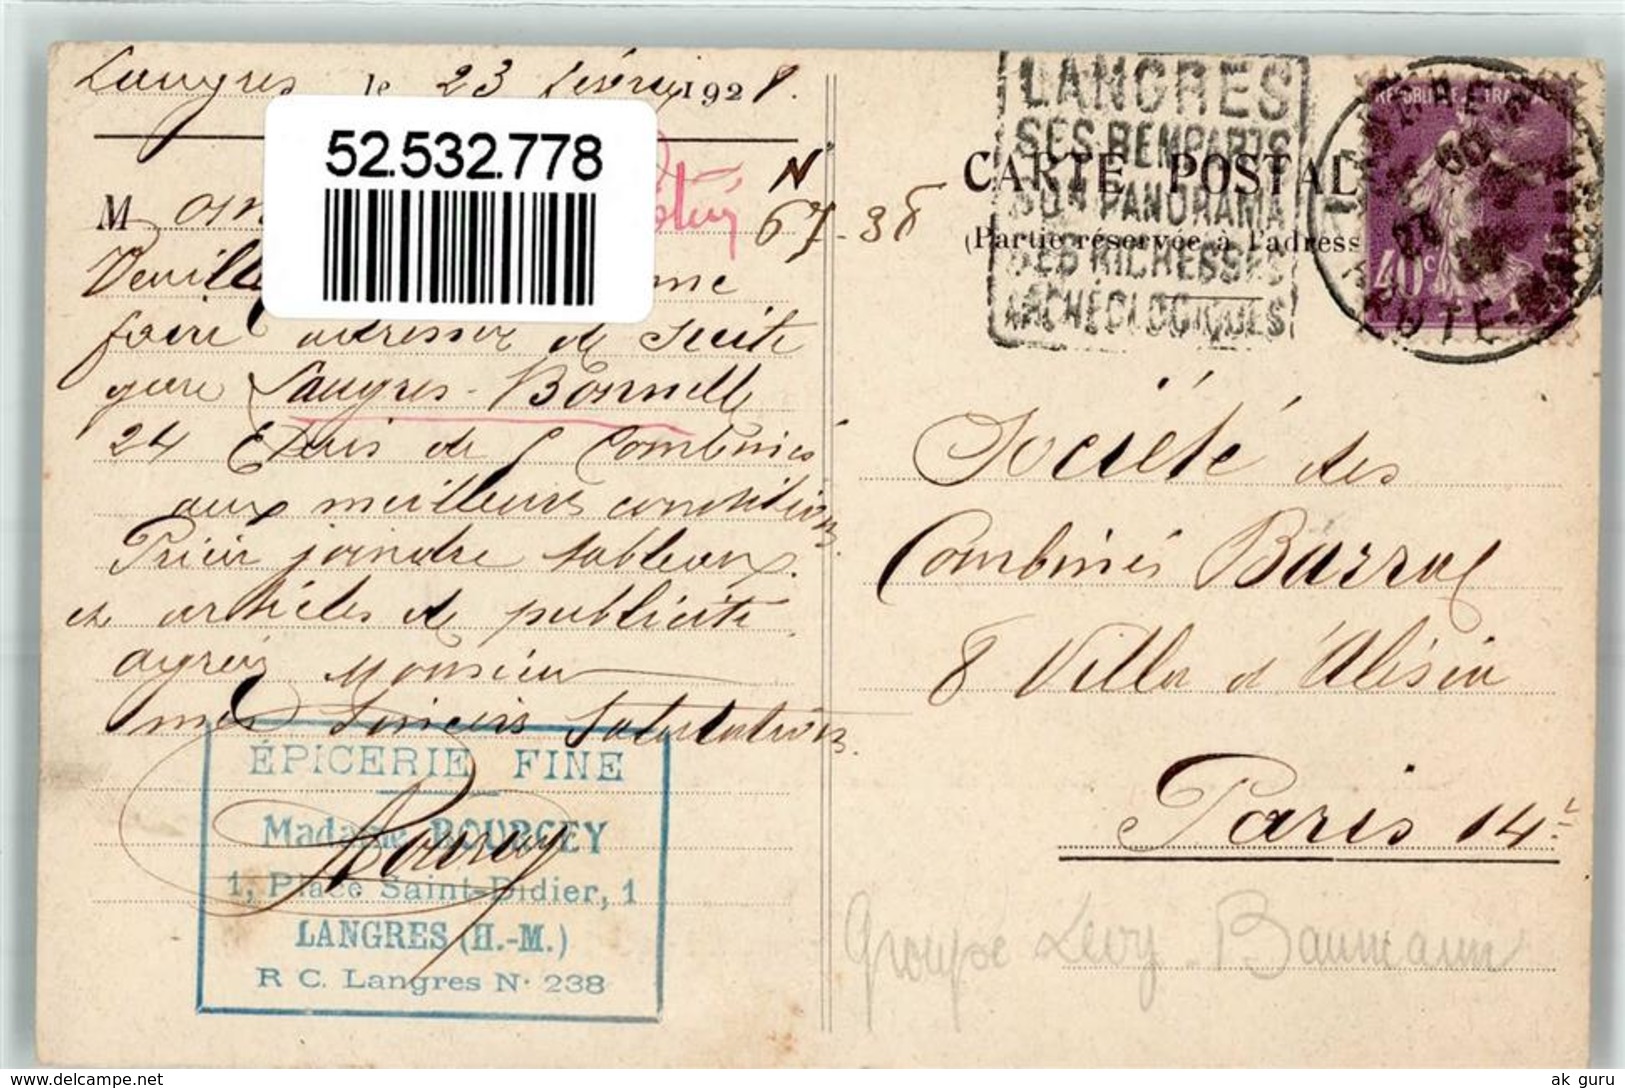 Langres le 23 février 1928.
52.532.778
M
N°
67-38
Veuill me
faire adresser de suite
gare Langres-Bonnelle
24 Étuis de 5 Combinés
aux meilleurs conditions
Prière joindre tableaux
et articles de publicité
agréez Monsieur
mes sincères salutations.
ÉPICERIE FINE
Madame BOURCEY
1, Place Saint-Didier, 1
LANGRES (H.-M.)
R C. Langres N· 238
LANGRES
SES REMPARTS
SON PANORAMA
SES RICHESSES
ARCHÉOLOGIQUES
CARTE POSTAL
(Partie réservée à l'adress
40c
Société des
Combinés Barral
8 Villa d'Alésia
Paris 14e
Groupe Levy-Baumann
ak guru